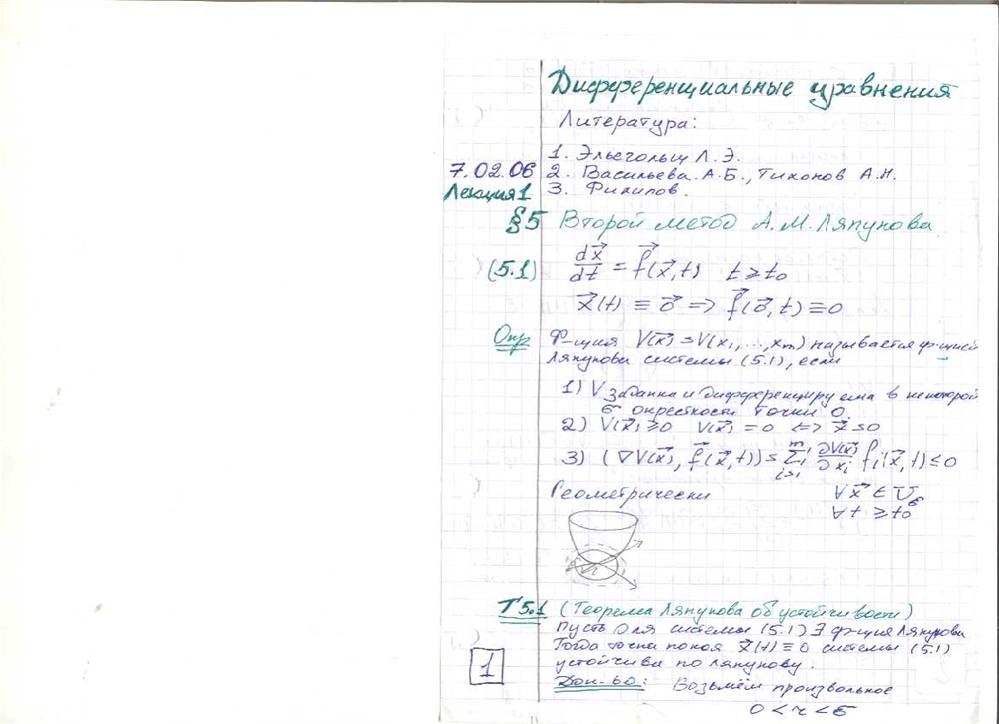 Дифференциальные уравнения
Литература:
1. Эльсгольц Л.Э.
7.02.06 2. Васильева А.Б., Тихонов А.Н.
Лекция 1 3. Филипов.
§5 Второй метод А.М. Ляпунова.
(5.1) dx⃗/dt = f⃗(x⃗,t) t ≥ t₀
x⃗(t) ≡ 0⃗ => f⃗(0⃗,t) ≡ 0
Опр Ф-ция V(x⃗) = V(x₁,...,xₘ) называется ф-цией
Ляпунова системы (5.1), если
1) V задана и дифференцируема в некоторой
σ окрестности точки 0.
2) V(x⃗) ≥ 0 V(x⃗) = 0 <=> x⃗ = 0
3) (∇V(x⃗), f⃗(x⃗,t)) = Σᵢ₌₁ᵐ ∂V(x⃗)/∂xᵢ fᵢ(x⃗,t) ≤ 0
Геометрически ∀x⃗ ∈ U_σ
∀t ≥ t₀
Т 5.1 (Теорема Ляпунова об устойчивости)
Пусть для системы (5.1) ∃ ф-ция Ляпунова
Тогда точка покоя x⃗(t) ≡ 0 системы (5.1)
устойчива по Ляпунову.
1
Док-во: Возьмём произвольное
0 < r < σ